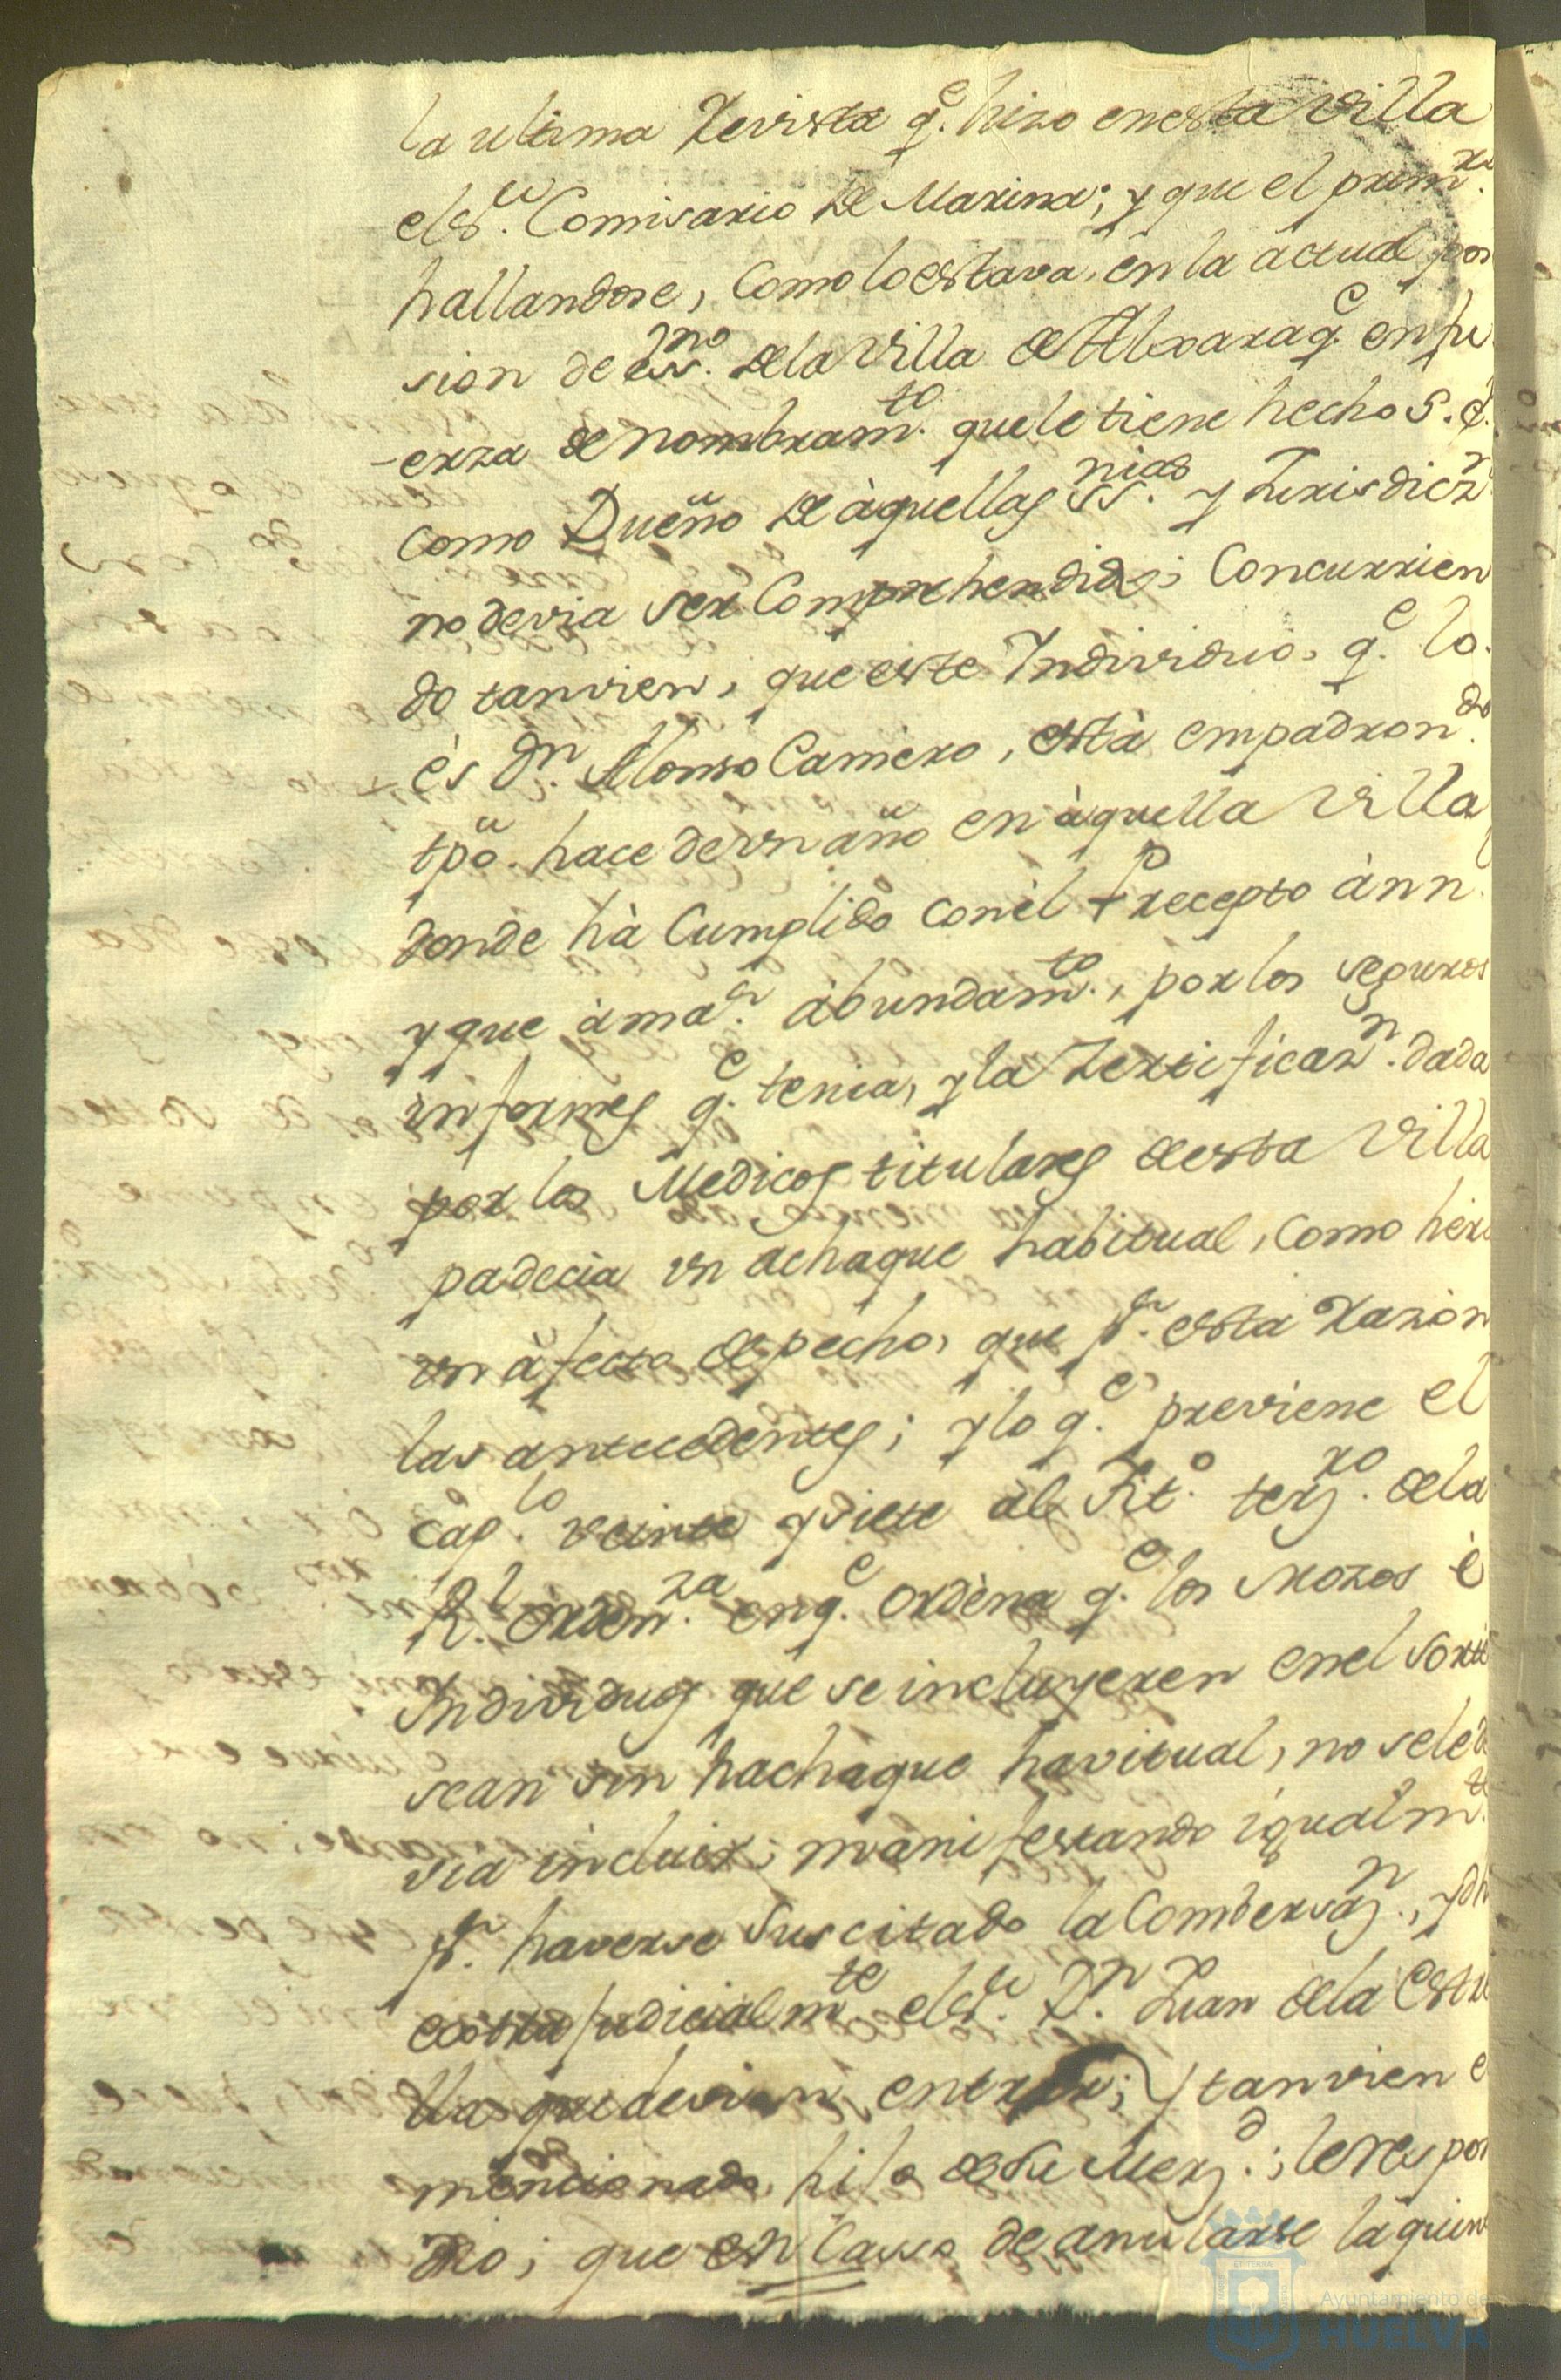 la ultima Revista q.e hizo en esta Villa
el S.or Comisario de Marina; y que el prim.ro
hallandose, como lo estava, en la actual pos
sion de ess.no de la Villa de Alxaraq.e en fu
-erza de nombram.to que le tiene hecho S. E.
como Dueño de àquellas SS.nias y Jurisdicz.n
no devia ser Comprehendido; Concurrien
do tanvien, que este Individuo, q.e lo
és D.n Alonso Carniero, està empadron.do
tpõ. hace de vn año en àquella Villa
donde hà Cumplido con èl Precepto ànn.l
y que à ma.or àbundam.to, por los seguros
informes q.e tenia, y la Zertificaz.n dada
por los Medicos titulares de esta Villa
padecia vn achaque habitual, como hera
vn àfecto de pecho, que p.r esta Razòn
las antecedentes; y lo q.e previene el
cap.lo veinte y siete del Tit.o terz.ro de la
R.l Orden.za en q.e Ordèna q.e los Mozos è
Individuos que se incluyeren en el Sorte
sean sin hachaque havitual, no se le de
via incluir; manifestando igualm.te
p.r haverse Suscitado la Combersaz.n, y dh
extrajudicialm.te el S.r D.n Juan de la Estre
lla que devian entrar; y tanvien e
mencionado hijo de su Merz.d; le respon
dio; que en Casso de anularse la quin
Ayuntamiento de
HUELVA